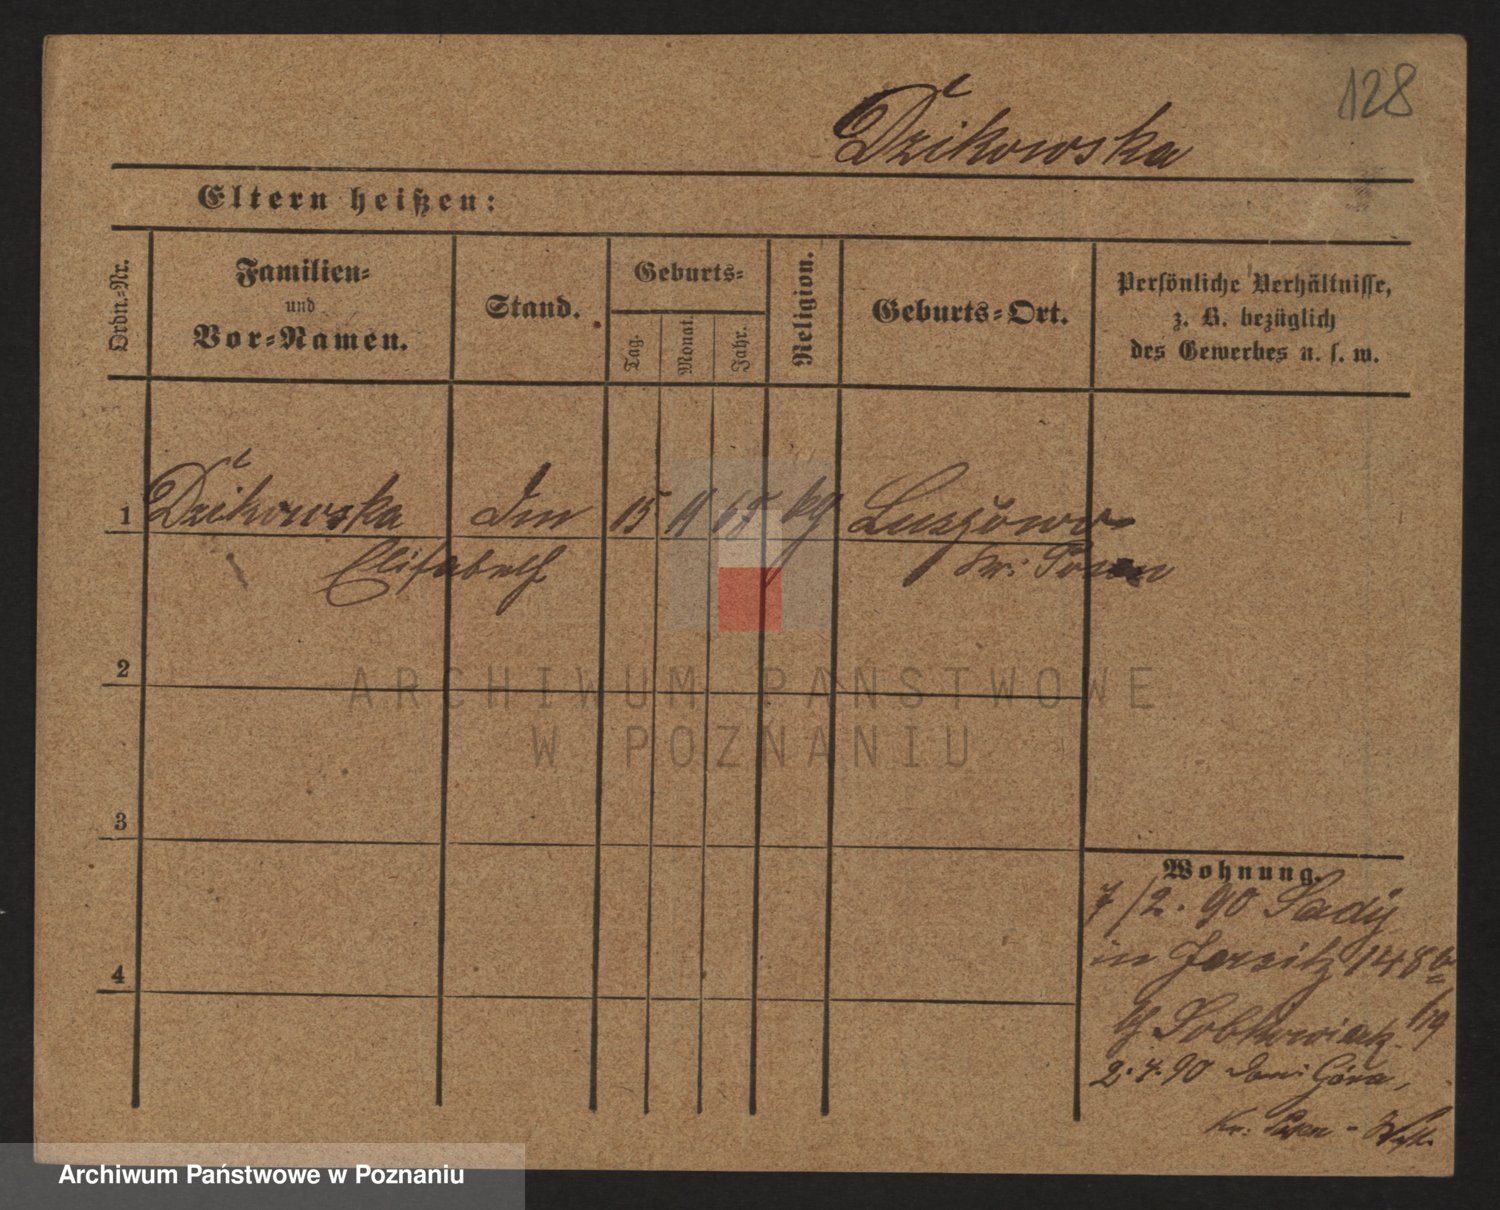 128
Dzikowska
Eltern heißen:
Ordn.-Nr.
Familien-
und
Vor-Namen.
Stand.
Geburts-
Tag.
Monat.
Jahr.
Religion.
Geburts-Ort.
Persönliche Verhältnisse,
z. B. bezüglich
des Gewerbes u. s. w.
1 Dzikowska 15 11 65 kg Luszowo
Elisabeth Kr: Posen
2
3
4
Wohnung.
7/2. 90 Sady
in Jersitz 148
b/ Sobkowiak
2.4.90 Dom: Góra,
Kr: Posen -
ARCHIWUM PAŃSTWOWE
W POZNANIU
Archiwum Państwowe w Poznaniu